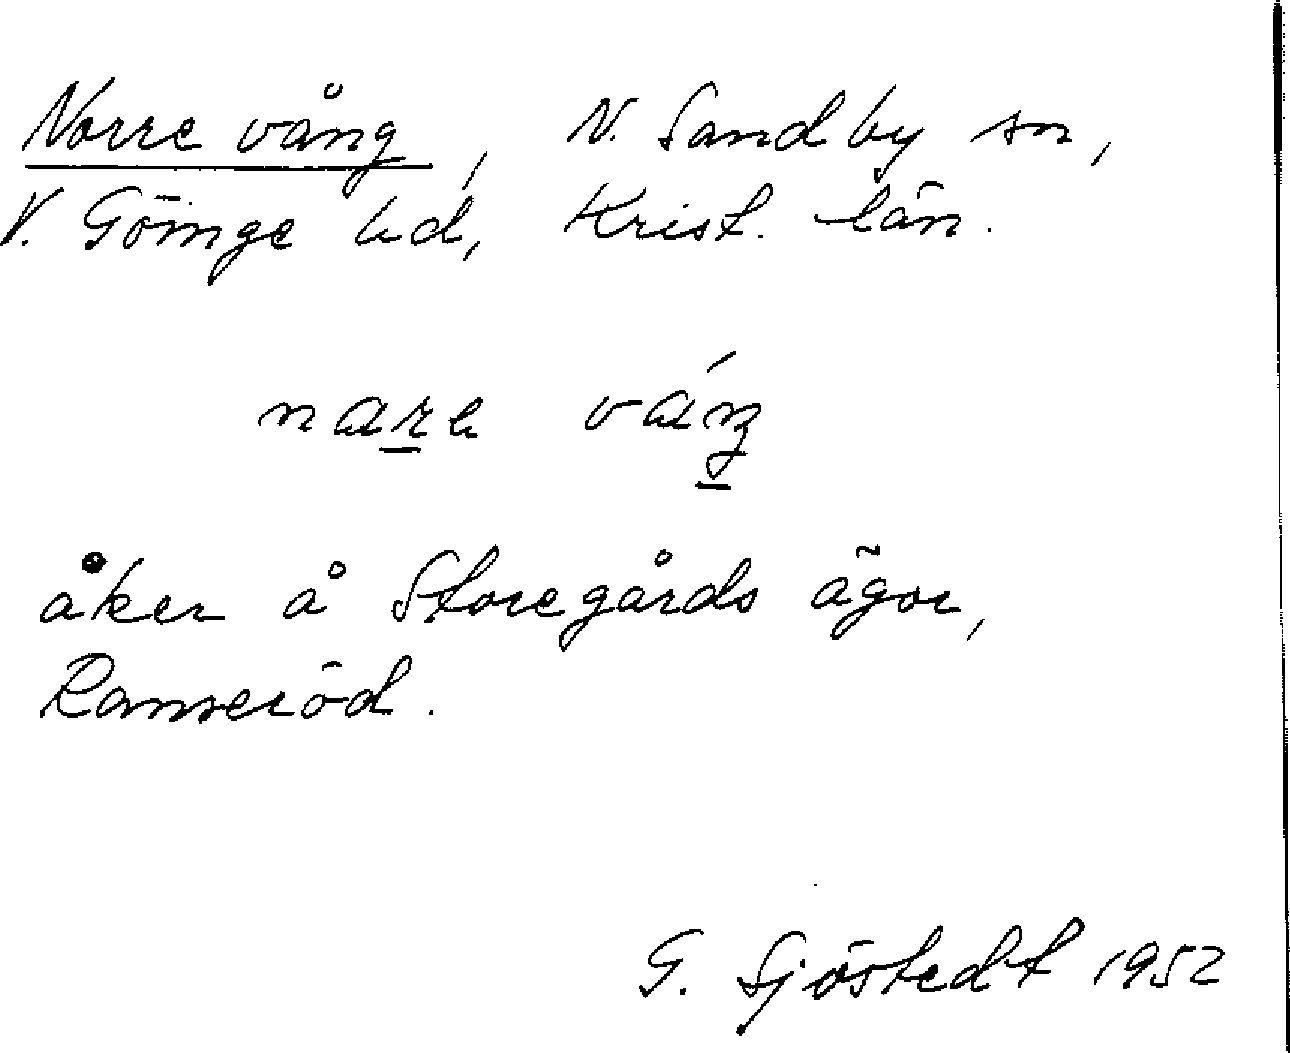 Norre vång, N. Sandby sn,
V. Göinge hd, Krist. län.
åker å Storegårds ägor,
Ranseröd.
G. Sjöstedt 1952